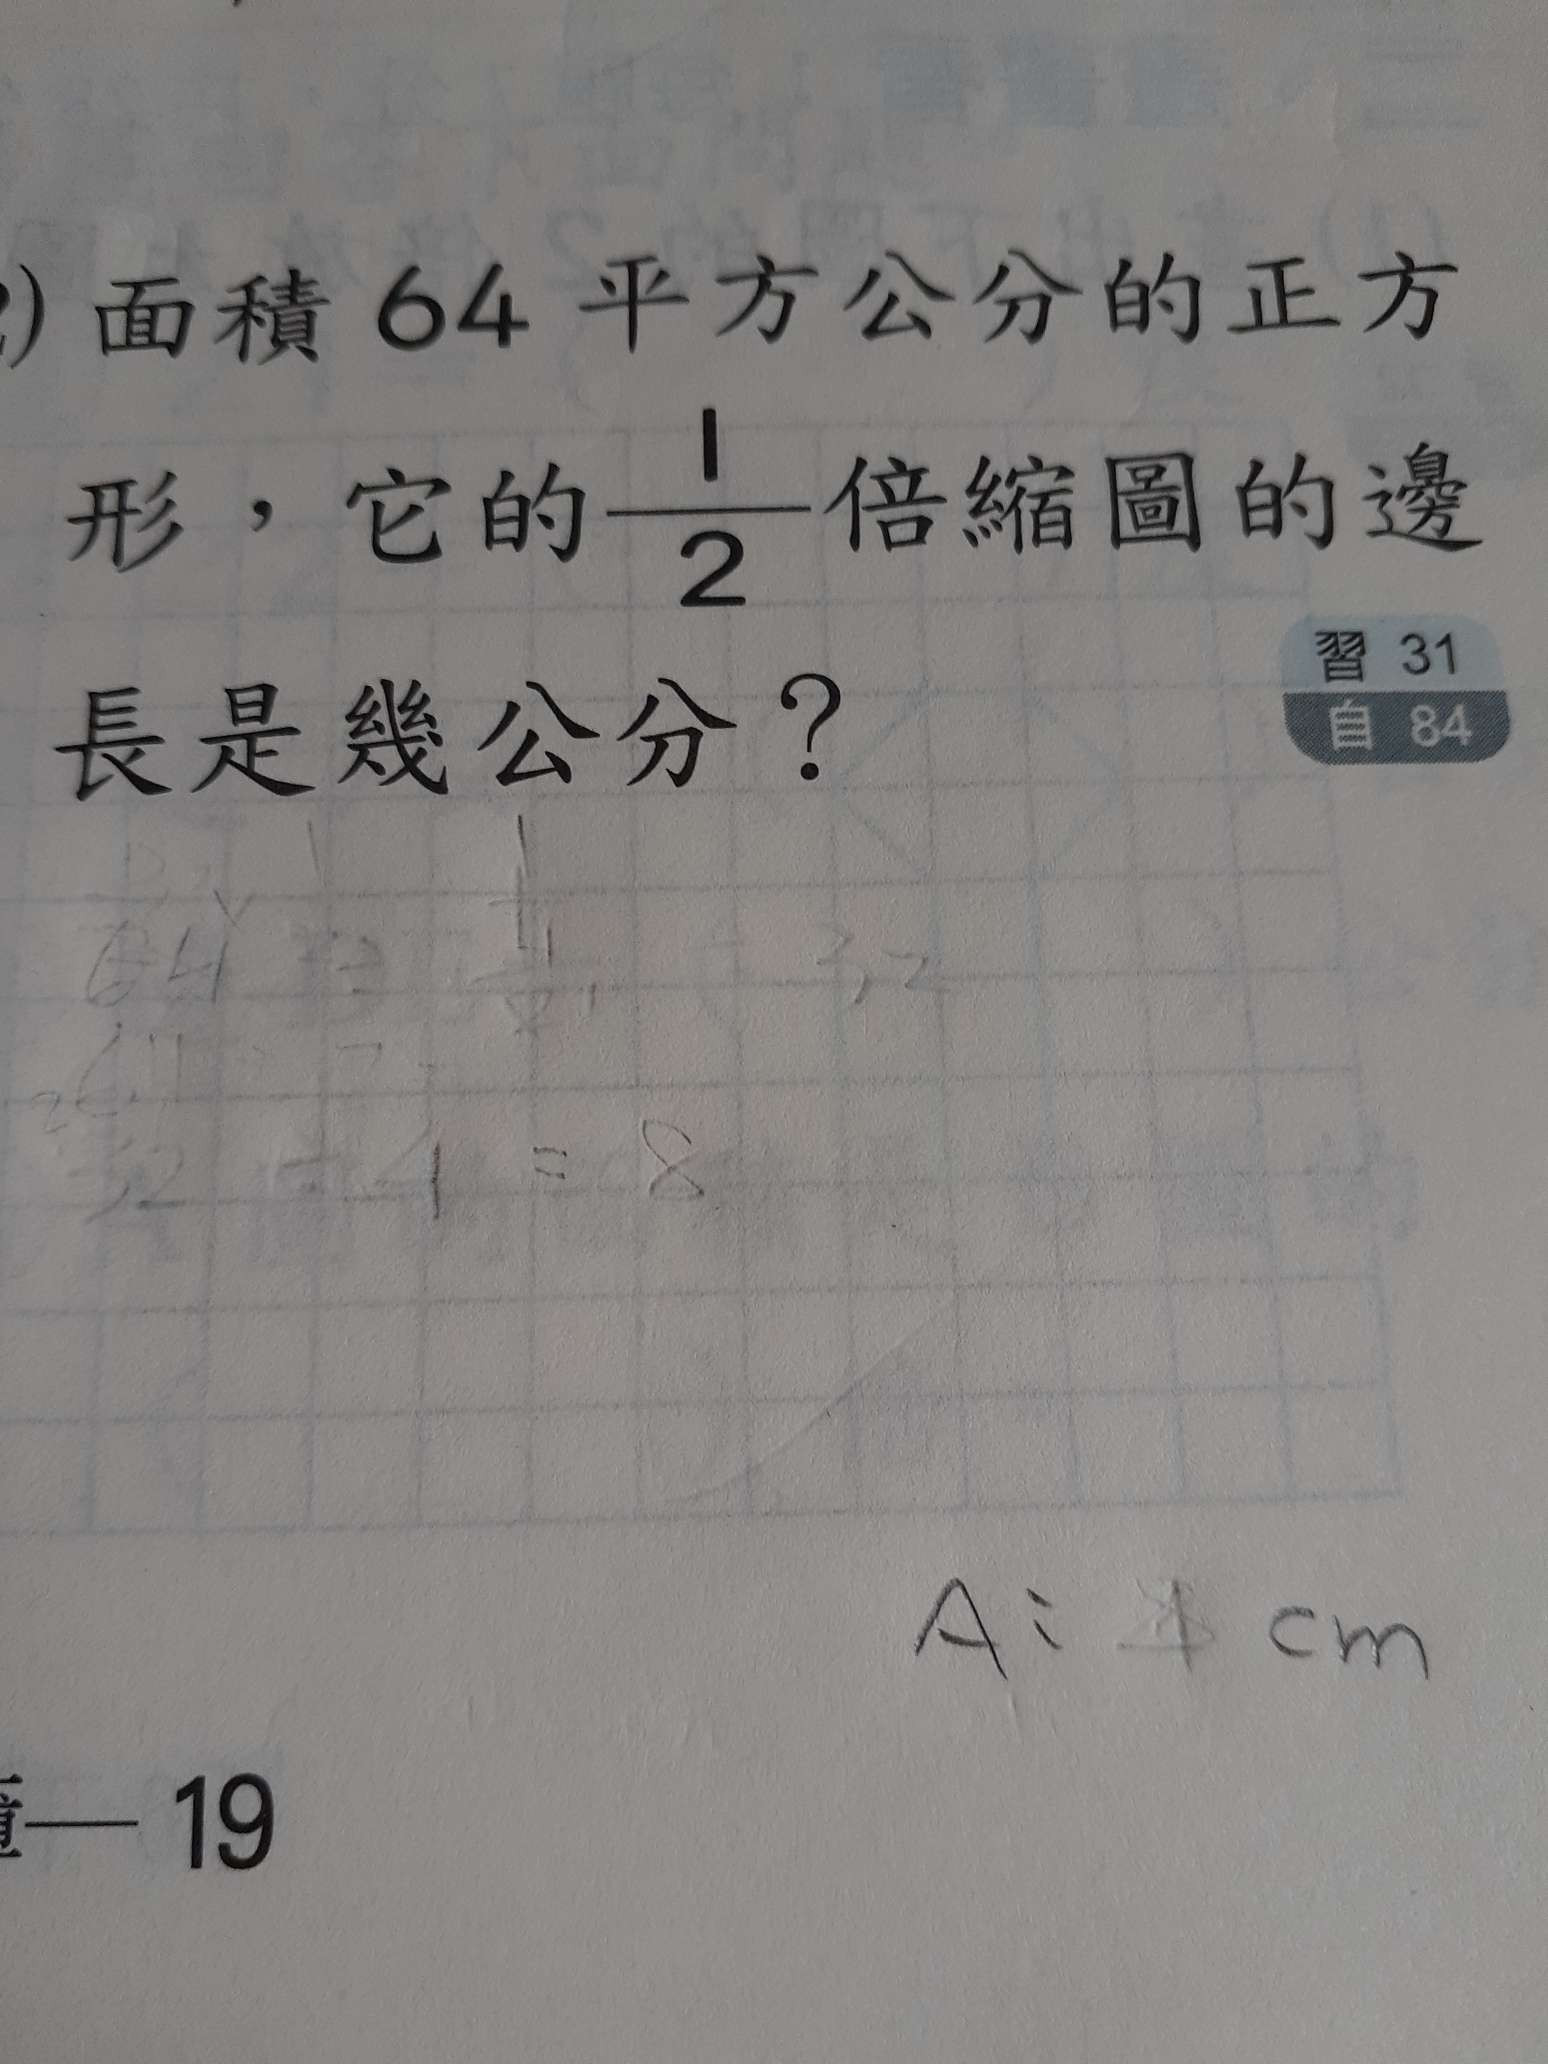 2) 面積 64 平方公分的正方
形，它的 1/2 倍縮圖的邊
長是幾公分？
習 31
自 84
64 32
32 ÷ 4 = 8
A: cm
19